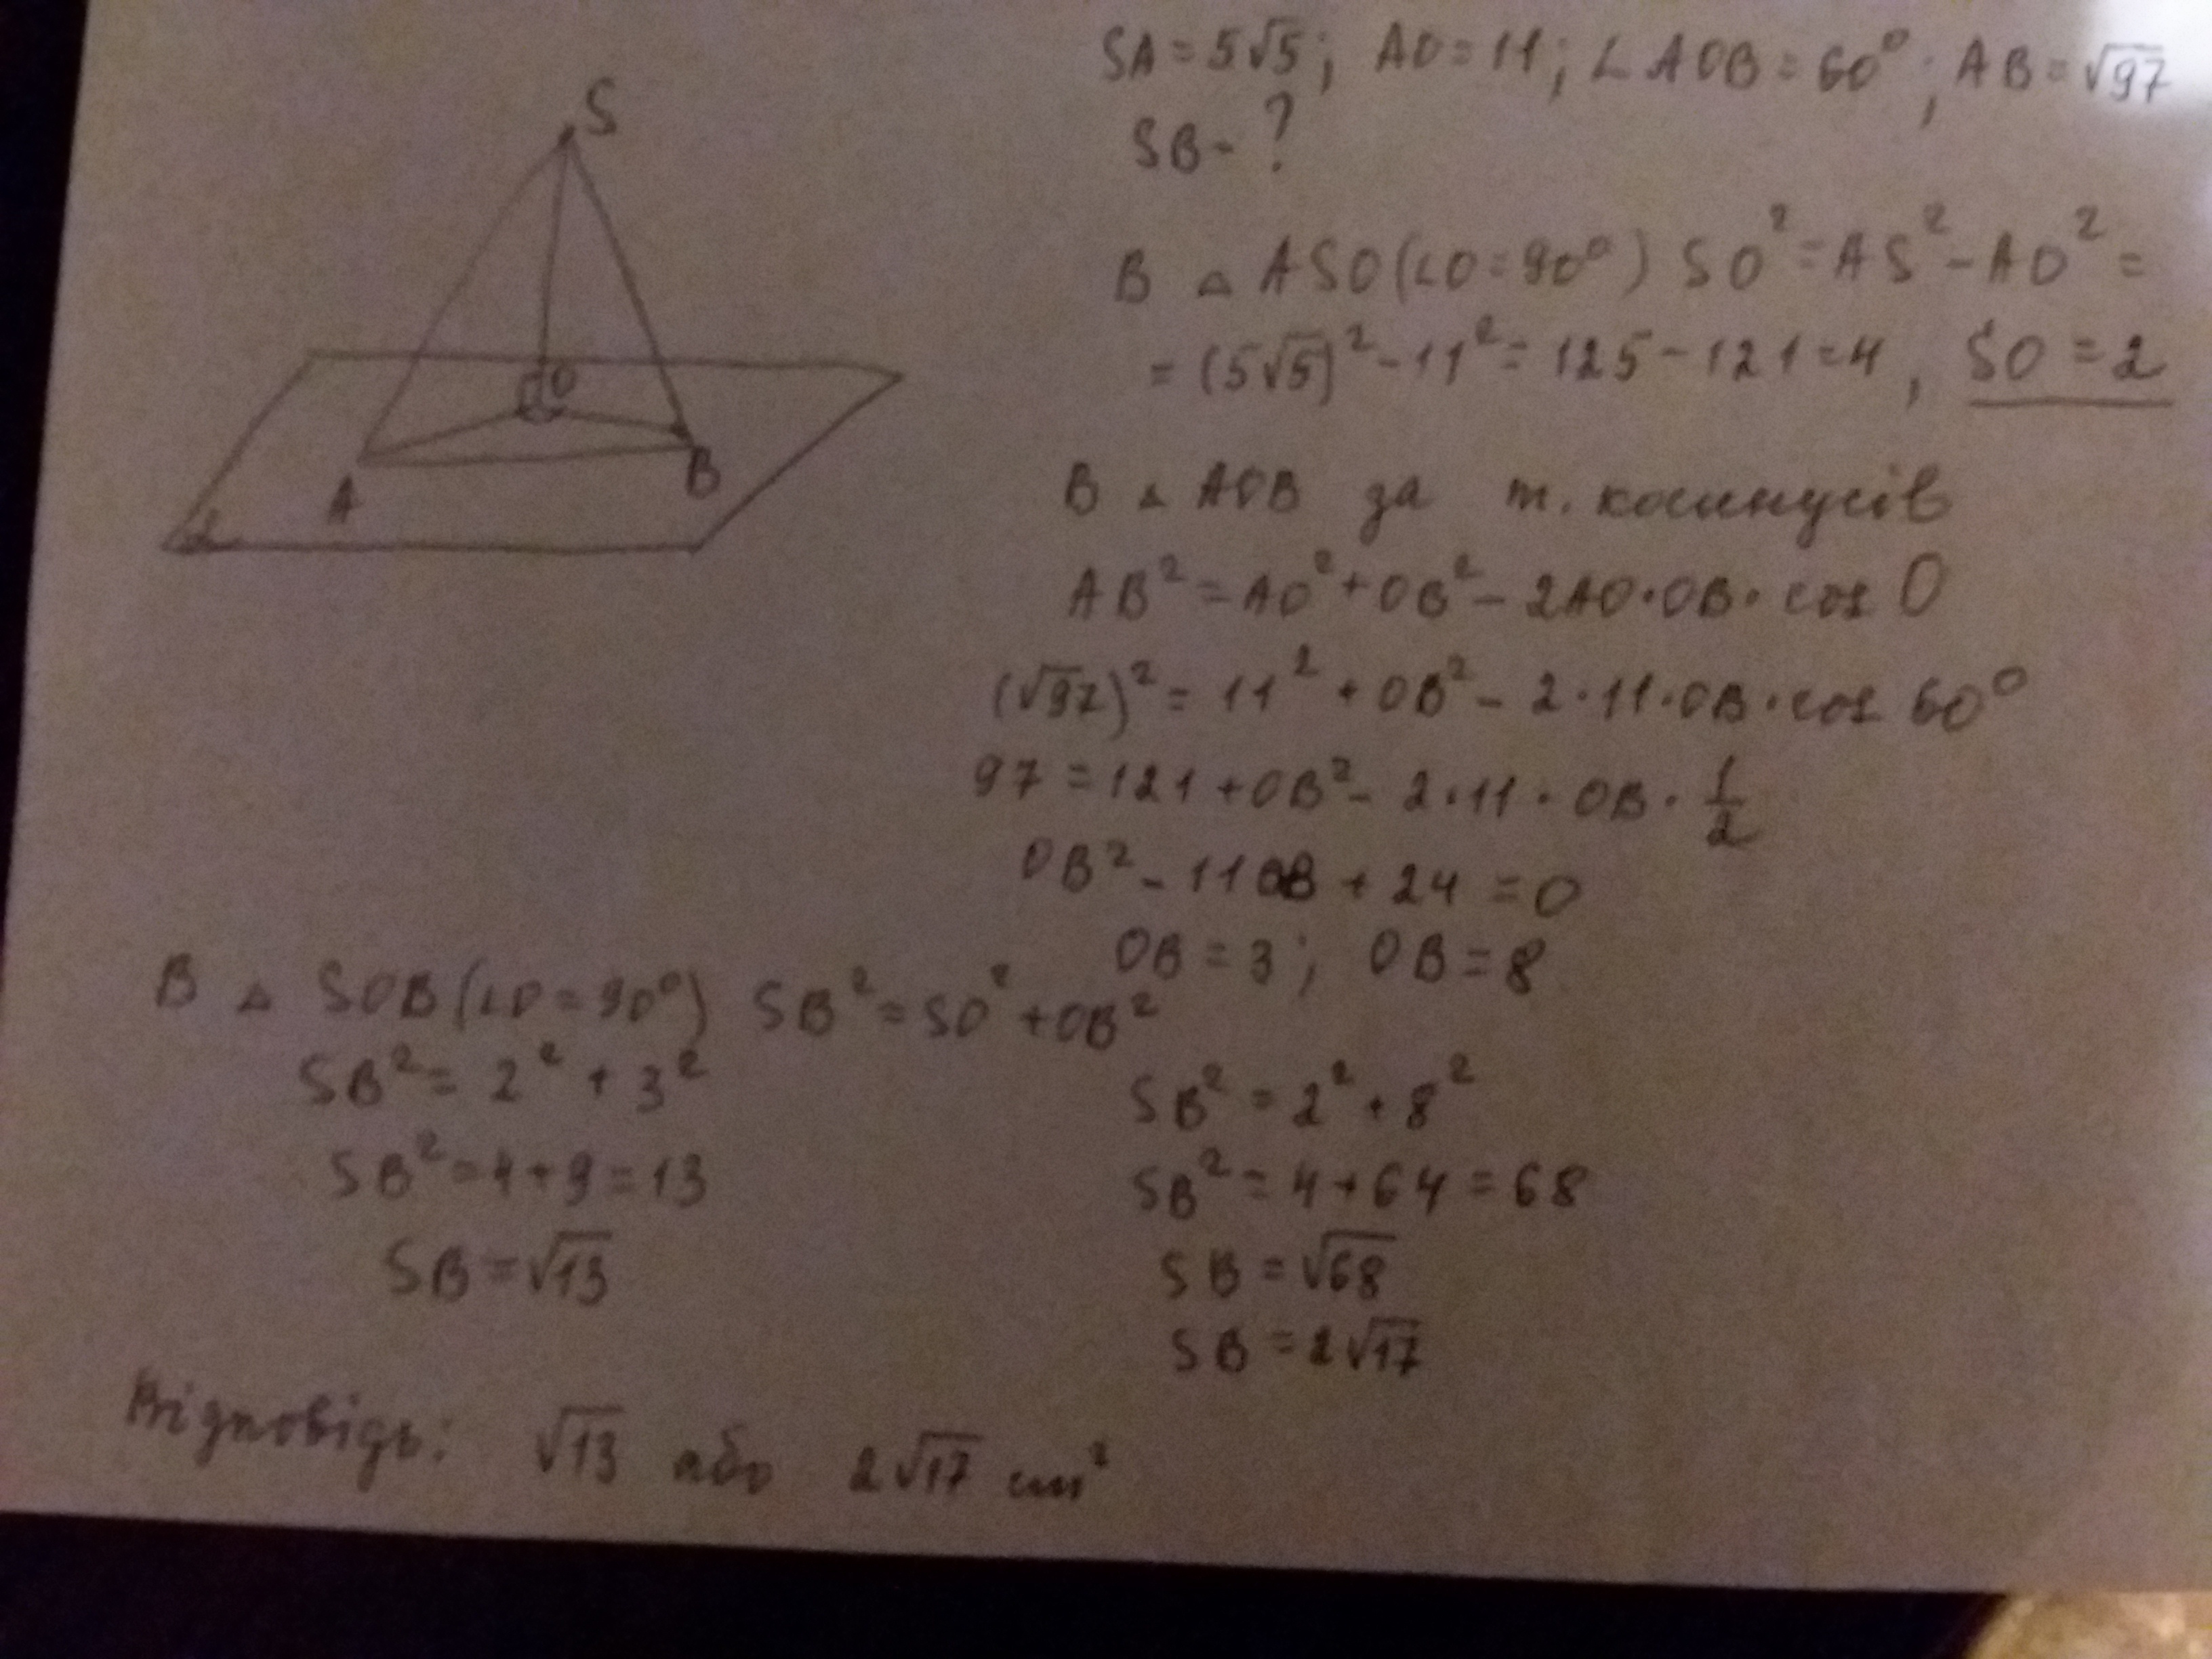 S
O
A
B
α
SA = 5√5; AO = 11; ∠AOB = 60°; AB = √97
SB - ?
В △ ASO (∠O = 90°) SO² = AS² - AO² =
= (5√5)² - 11² = 125 - 121 = 4, SO = 2
В △ AOB за т. косинусів
AB² = AO² + OB² - 2AO·OB·cos O
(√97)² = 11² + OB² - 2·11·OB·cos 60°
97 = 121 + OB² - 2·11·OB·1/2
OB² - 11OB + 24 = 0
OB = 3; OB = 8
В △ SOB (∠O = 90°) SB² = SO² + OB²
SB² = 2² + 3²
SB² = 4 + 9 = 13
SB = √13
SB² = 2² + 8²
SB² = 4 + 64 = 68
SB = √68
SB = 2√17
Відповідь: √13 або 2√17 см²